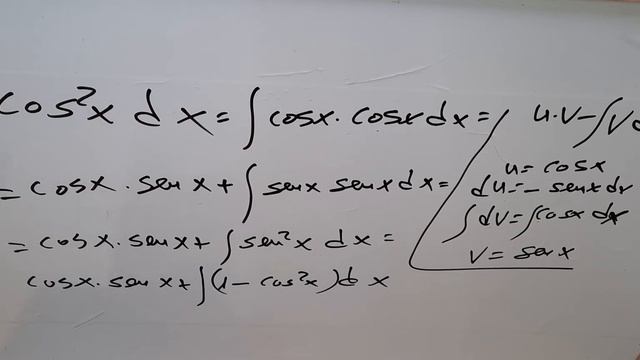 cos²x dx = ∫ cosx · cosx dx =
= cosx · sen x + ∫ senx senx dx =
= cosx · senx + ∫ sen²x dx =
cosx · senx + ∫(1 - cos²x)dx
u·v - ∫v
u = cosx
du = - senx dx
∫dv = ∫cosx dx
v = senx